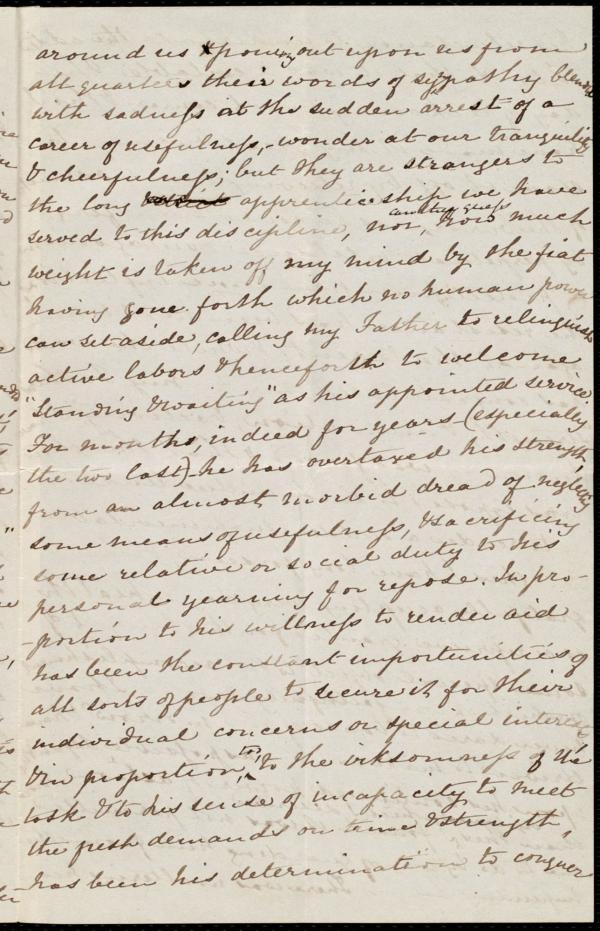 around us & pouring out upon us from
all quarters their words of sympathy blended
with sadness at the sudden arrest of a
career of usefulness, - wonder at our tranquility
& cheerfulness; but they are strangers to
the long apprenticeship we have
served to this discipline, nor, can they guess how much
weight is taken off my mind by the fiat
having gone forth which no human power
can set aside, calling my Father to relinquish
active labors & henceforth to welcome
"Standing & waiting" as his appointed service.
For months, indeed for years - (especially
the two last) - he has overtaxed his strength,
from an almost morbid dread of neglecting
some means of usefulness, & sacrificing
some relative or social duty to his
personal yearning for repose. In pro-
-portion to his willness to render aid
has been the constant importunities of
all sorts of people to secure it for their
individual concerns or special interest
& in proportion, too, to the irksomness of the
task & to his sense of incapacity to meet
the fresh demands on time & strength,
has been his determination to conquer